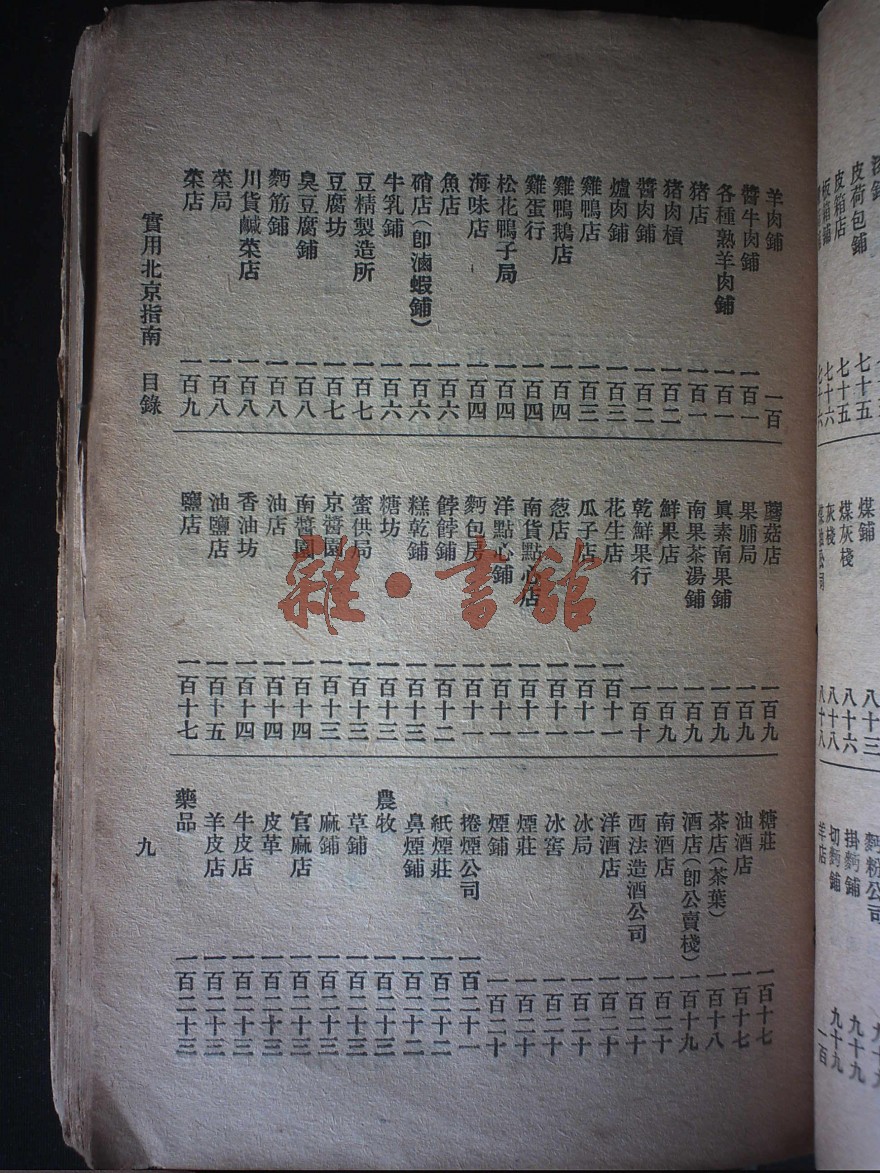 羊肉鋪 一百
醬牛肉鋪 一百一
各種熟羊肉鋪 一百一
猪店 一百一
猪肉槓 一百二
醬肉鋪 一百二
爐肉鋪 一百三
雞鴨店 一百三
雞鴨鵝店 一百四
雞蛋行 一百四
松花鴨子局 一百四
海味店 一百四
魚店 一百六
硝店（卽滷蝦鋪） 一百六
牛乳鋪 一百六
豆精製造所 一百七
豆腐坊 一百七
臭豆腐鋪 一百八
麪筋鋪 一百八
川貨鹹菜店 一百八
菜局 一百八
菜店 一百九
蘑菇店 一百九
果脯局 一百九
眞素南果鋪 一百九
南果茶湯鋪 一百九
鮮果店 一百九
乾鮮果行 一百十
花生店 一百十一
瓜子店 一百十一
葱店 一百十一
南貨點心店 一百十一
洋點心鋪 一百十一
麪包房 一百十一
餑餑鋪 一百十二
糕乾鋪 一百十三
糖坊 一百十三
蜜供局 一百十三
京醬園 一百十三
南醬園 一百十四
油店 一百十四
香油坊 一百十四
油鹽店 一百十五
鹽店 一百十七
糖莊 一百十七
油酒店 一百十七
茶店（茶葉） 一百十八
酒店（卽公賣棧） 一百十九
南酒店 一百二十
西法造酒公司 一百二十
洋酒店 一百二十
冰局 一百二十
冰窖 一百二十
煙莊 一百二十
煙鋪 一百二十
捲煙公司 一百二十一
紙煙莊 一百二十二
鼻煙鋪 一百二十二
農牧
草鋪 一百二十三
麻鋪 一百二十三
官麻店 一百二十三
皮革 一百二十三
牛皮店 一百二十三
羊皮店 一百二十三
藥品 一百二十三
實用北京指南 目錄
九
雜·書館
皮荷包鋪 七十五
皮箱店 七十五
板箱鋪 七十六
煤鋪 八十三
煤灰棧 八十六
灰棧 八十八
麪粉公司 九十九
掛麪鋪 九十九
切麪鋪 九十九
羊店 一百